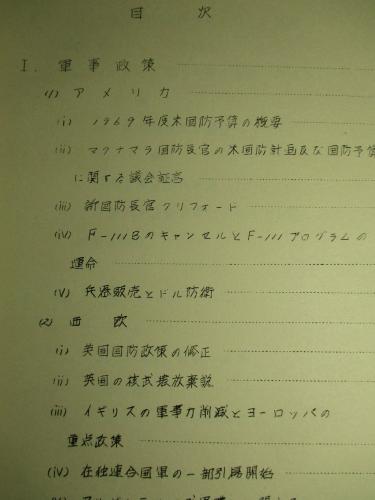 目 次
I. 軍事政策
(1) アメリカ
(i) 1969年度米国防予算の概要
(ii) マクナマラ国防長官の米国防計画及な国防予算
に関する議会証言
(iii) 新国防長官クリフォード
(iv) F-111BのキャンセルとF-111プログラムの
運命
(V) 兵器販売とドル防衛
(2) 西 欧
(i) 英国国防政策の修正
(ii) 英国の核武装放棄説
(iii) イギリスの軍事力削減とヨーロッパの
重点政策
(iv) 在独連合国軍の一部引揚開始